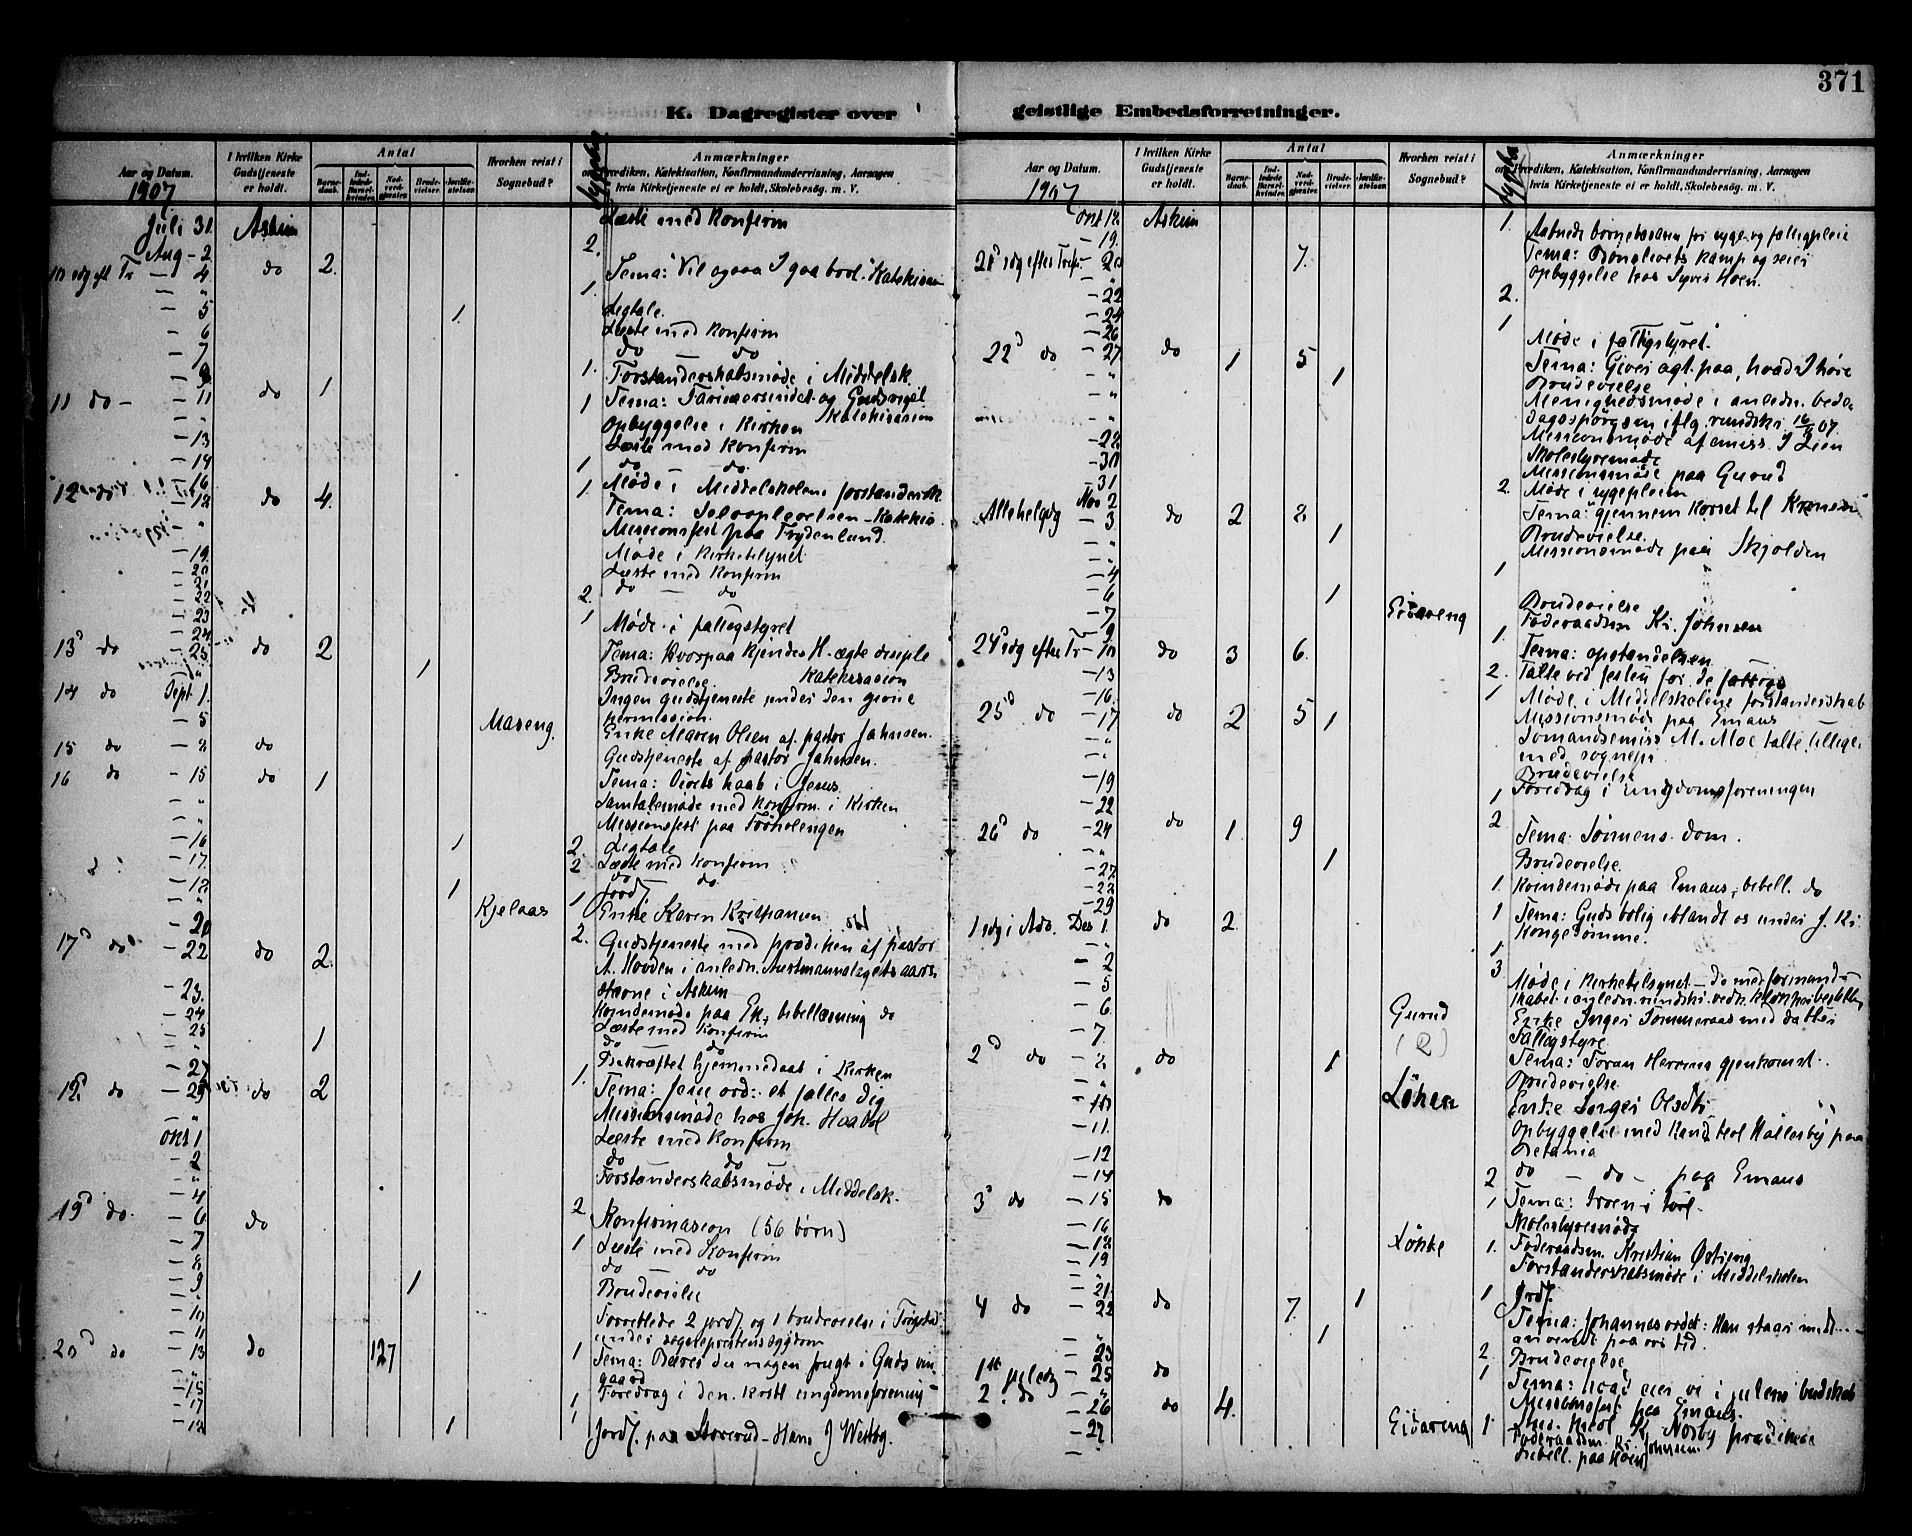 371
K. Dagregister over
geistlige Embedsforretninger.
Aar og Datum.
I hvilken Kirke Gudstjeneste er holdt.
Antal
Barnedaab.
Indledede Barselkvinder.
Nadverdgjæster.
Brudevielser.
Jordfæstelser.
Hvorhen reist i Sognebud?
Anmærkninger
om Prædiken, Katekisation, Konfirmandundervisning, Aarsagen
hvis Kirketjeneste ei er holdt, Skolebesøg. m. V.
1907
Juli 31 Askim Læste med Konfirm
Aug - 2 2.
10 sdg eft Tr - 4 do 2. Tema: Vil ogsaa I gaa bort. Katekisasion
- " 1.
- 5 1. Ligtale.
- 6 Læste med Konfirm
- 7 do do
- 9 1. Forstanderskabsmøde i Middelsk.
11 do - - 11 do 1 1 Tema: og Katekisasion
- " Opbyggelse i Kirken
- 13 Læste med Konfirm
- 14 do - do
- 16 1 Møde i Middelskolens forstandersk.
12 - 18 do 4. 1. Tema: Selvoplevelsen - Katekis
- " Missionsfest paa Frydenlund.
- 19 Møde i Kirketilsynet
- 20 Læste med Konfirm
- 21 do do
- 22 2.
- 23 1 Møde i fattigstyret
- 24
13 do - 25 do 2 Tema: Hvorpaa kjendes H. ægte disiple
- " 1 Brudevielse. Katekisasion
14 do Sept 1. Ingen gudstjeneste under den givne permission.
- 5 Maseng. Enke Maren Olsen af pastor Jahnsen.
15 do - 8 do Gudstjeneste af pastor Jahnsen.
16 do - 15 do 1 Tema: Vort haab i Jesus.
- " Samtalemøde med Konfirm. i Kirken
- " Missionsfest paa
- 16 1 2. Ligtale
- 17. 2 Læste med Konfirm
- 18 1 do do
- " Kjelaas 1 Jordf.
- 20 2. Enke Karen Kristiansen
17 do - 22 do 2. Gudstjeneste med prædiken af pastor
A. Hovden i anledn. Austmannalagets aars
stevne i Askim
- 23. Kvindemøde paa Ek, bibellæsning do
- 24 Læste med Konfirm
- 25 do do
- " 1 Bekræftet hjemmedaab i Kirken
- 27 1.
18. do - 29 do 2 Tema: Jesu ord: et fattes dig
- " Missionsmøde hos Joh. Haabøl
Okt 1 Læste med Konfirm
- 2 do do
- " Forstanderskabsmøde i Middelsk.
- 4 2
19 do. - 6 do Konfirmasion (56 børn)
- 7 1 Læste med Konfirm
- 8 do do
- 9 1 Brudevielse
- 10 Forrettede 2 jordf. og 1 brudevielse i Trøgstad
- 11 under sogneprestens sygdom
20 do - 13 do 127 1 Tema: Bærer du nogen frugt i Guds vingaard
- " Foredrag i den kristl ungdomsforening
- 15
- 17 1
- 18 1 1 Jordf. paa Storerud - Hans J Westby.
1907
Okt 18 Askim 1. Aabnede for syge- og fattigpleie
- 19.
21 sdg efter Tref. - 20 7. Tema: Bønslivets kamp og seier
- " Opbyggelse hos Hoen.
- 22 2.
- 24
- 26 1 Møde i fattigstyret.
22 do - 27 do 1 5 Tema: Giver agt paa, hvad I høre
- " 1 Brudevielse
- " Menighedsmøde i anledn. bededagsspørgsm iflg. rundskr 16/8 07.
- " Missionsmøde af emiss. J Lien
- 28 Skolestyremøde
- 30 Missionsmøde paa Gurud
- 31
Nov 2 2. Møde i sygepleien
Allehelgdg - 3 do 2 8 Tema: "gjennem korset til kronen"
- " 1 Brudevielse.
- " Missionsmøde paa Skjolden
- 4 1
- 6 1 Brudevielse
- 7 Eidareng Føderaadsm Kr. Johnsen
- 9 1.
24 sdg efter Tr - 10 do 3 6. Tema: opstandelsen
- 13 2. Talte ved festen for de fattige
- 16. 1 Møde i Middelskolens forstanderskab
25 do - 17 do 2 5 1 Missionsmøde paa Emaus
- " Sømandsmiss M. Moe talte tillige
- " med sognepr
Brudevielse
- 19 Foredrag i ungdomsforeningen
- 22 1
26 do - 24 do 1. 9 2 Tema: Sønnens dom.
- " 1 Brudevielse.
- 27 1. Kvindemøde paa Emaus, bibell. do
- 28
- 29
1 sdg i Adv. Des 1. do 2. 1 Tema: Guds bolig iblandt os under J. Kr. Kongedømme.
- " 1
- 2 3 Møde i Kirketilsynet - do med formandskabet i anledn. rundskr. vedr.
- 5
- 6 Gurud Enke Inger Sommeraas med datter
- 7. (2) Fattigstyre
2 do - 8 do 1 Tema: Foran Herrens gjenkomst.
- " Brudevielse
- 10 Løken Enke Inger Olsdtr
- 11. Opbyggelse med Kand teol Hallesby paa Betania
- 12 do - do - paa Emaus
- 14 2
3 do - 15 do 1 Tema: Troen i tvil.
- 16 Skolestyremøde
- 18 Løkke 1. Føderaadsm Kristian Østeng
- 19 Forstanderskabsmøde i Middelskolen
- 21. 1 1 Jordf.
4 do - 22 do 7. Tema: Johannesordet: Han staar midt.... anvendt paa vor tid.
- " 1 Brudevielse
- 23 2.
1ste juledg - 25 do 1 Tema: hvad eier vi i julens budskab
- " Missionsfest paa Emaus.
2. do - 26 do 4. Nosby prædikede
- 27 Eidareng 1. Føderaadsm Kr. Johnsen
- " Bibell. paa Hoen